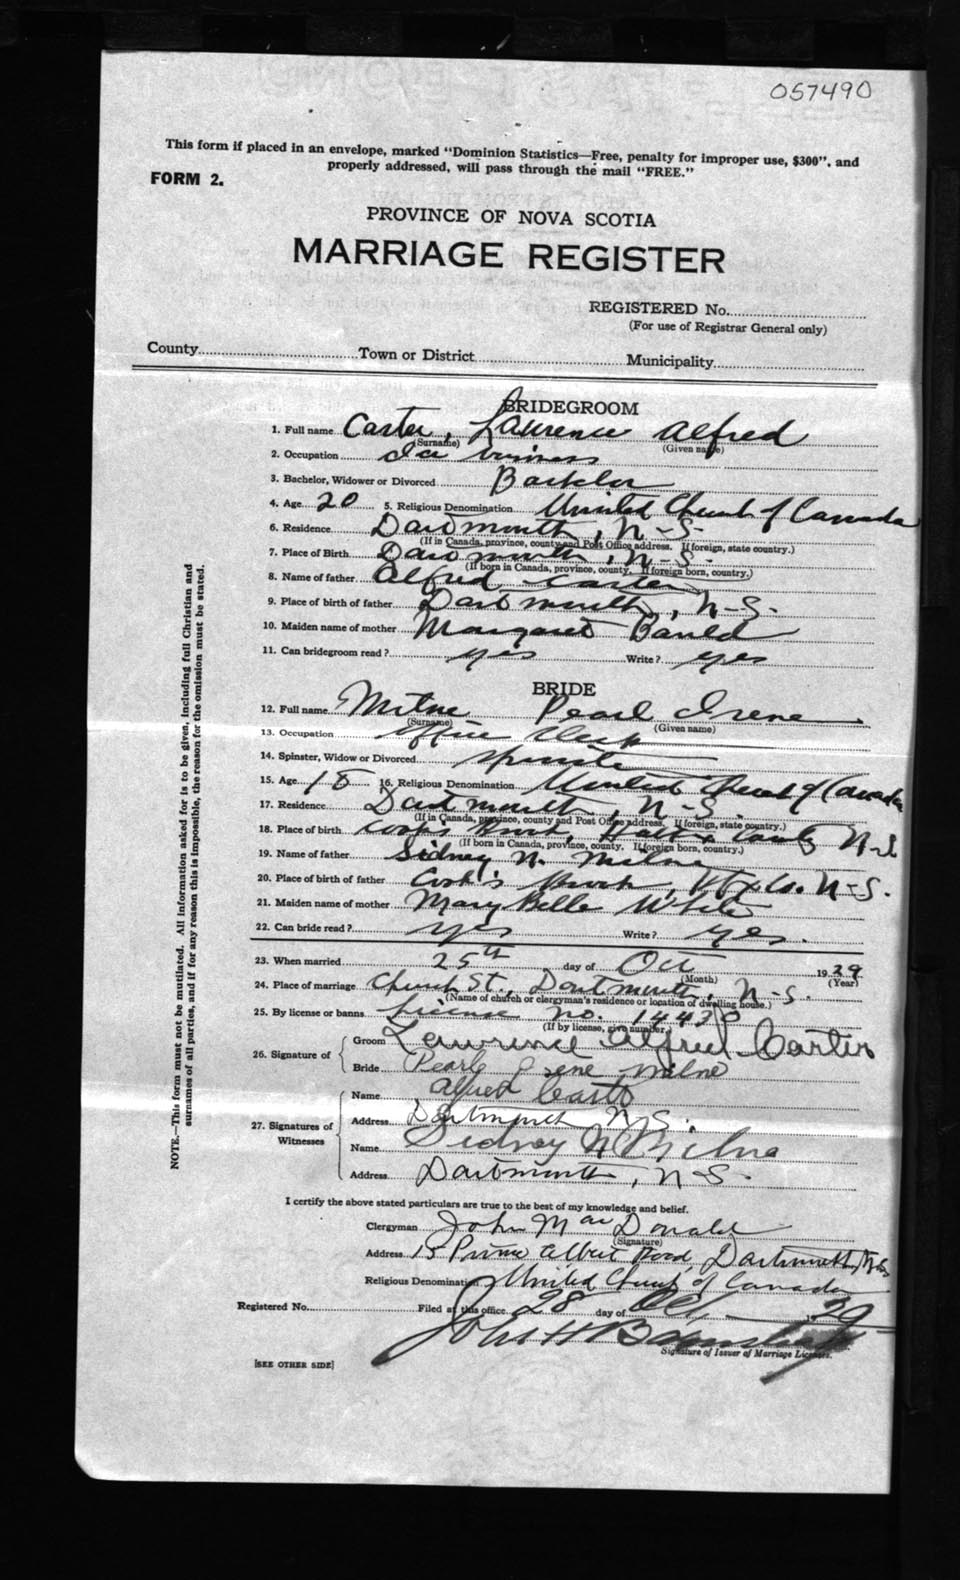 057490
This form if placed in an envelope, marked "Dominion Statistics—Free, penalty for improper use, $300", and
properly addressed, will pass through the mail "FREE."
FORM 2.
PROVINCE OF NOVA SCOTIA
MARRIAGE REGISTER
REGISTERED No.
(For use of Registrar General only)
County Town or District Municipality
BRIDEGROOM
1. Full name Carter, Laurence Alfred
(Surname) (Given name)
2. Occupation Ice business
3. Bachelor, Widower or Divorced Bachelor
4. Age 20 5. Religious Denomination United Church of Canada
6. Residence Dartmouth, N-S-
(If in Canada, province, county and Post Office address. If foreign, state country.)
7. Place of Birth Dartmouth, N-S.
(If born in Canada, province, county. If foreign born, country.)
8. Name of father Alfred Carter
9. Place of birth of father Dartmouth, N-S.
10. Maiden name of mother Margaret Bauld
11. Can bridegroom read? yes Write? yes
BRIDE
12. Full name Milne Pearl Irene
(Surname) (Given name)
13. Occupation Office Clerk
14. Spinster, Widow or Divorced Spinster
15. Age 18 16. Religious Denomination United Church of Canada
17. Residence Dartmouth, N-S
(If in Canada, province, county and Post Office address. If foreign, state country.)
18. Place of birth Cook's Brook, Halifax County N-S.
(If born in Canada, province, county. If foreign born, country.)
19. Name of father Sidney N. Milne
20. Place of birth of father Cook's Brook, Hfx Co. N-S.
21. Maiden name of mother Mary Belle White
22. Can bride read? yes Write? yes.
23. When married 25th day of Oct 1929
(Month) (Year)
24. Place of marriage Church St., Dartmouth, N-S.
(Name of church or clergyman's residence or location of dwelling house.)
25. By license or banns License no. 14430
(If by license, give number.)
26. Signature of Groom Lawrence Alfred Carter
Bride Pearl Irene Milne
27. Signatures of Witnesses Name Alfred Carter
Address Dartmouth N.S.
Name Sidney N Milne
Address Dartmouth, N-S.
I certify the above stated particulars are true to the best of my knowledge and belief.
Clergyman John MacDonald
(Signature)
Address 15 Prince Albert Road, Dartmouth, N.S.
Religious Denomination United Church of Canada
Registered No. Filed at this office 28 day of Oct 1929
John H
Signature of Issuer of Marriage Licenses.
[SEE OTHER SIDE]
NOTE.—This form must not be mutilated. All information asked for is to be given, including full Christian and
surnames of all parties, and if for any reason this is impossible, the reason for the omission must be stated.